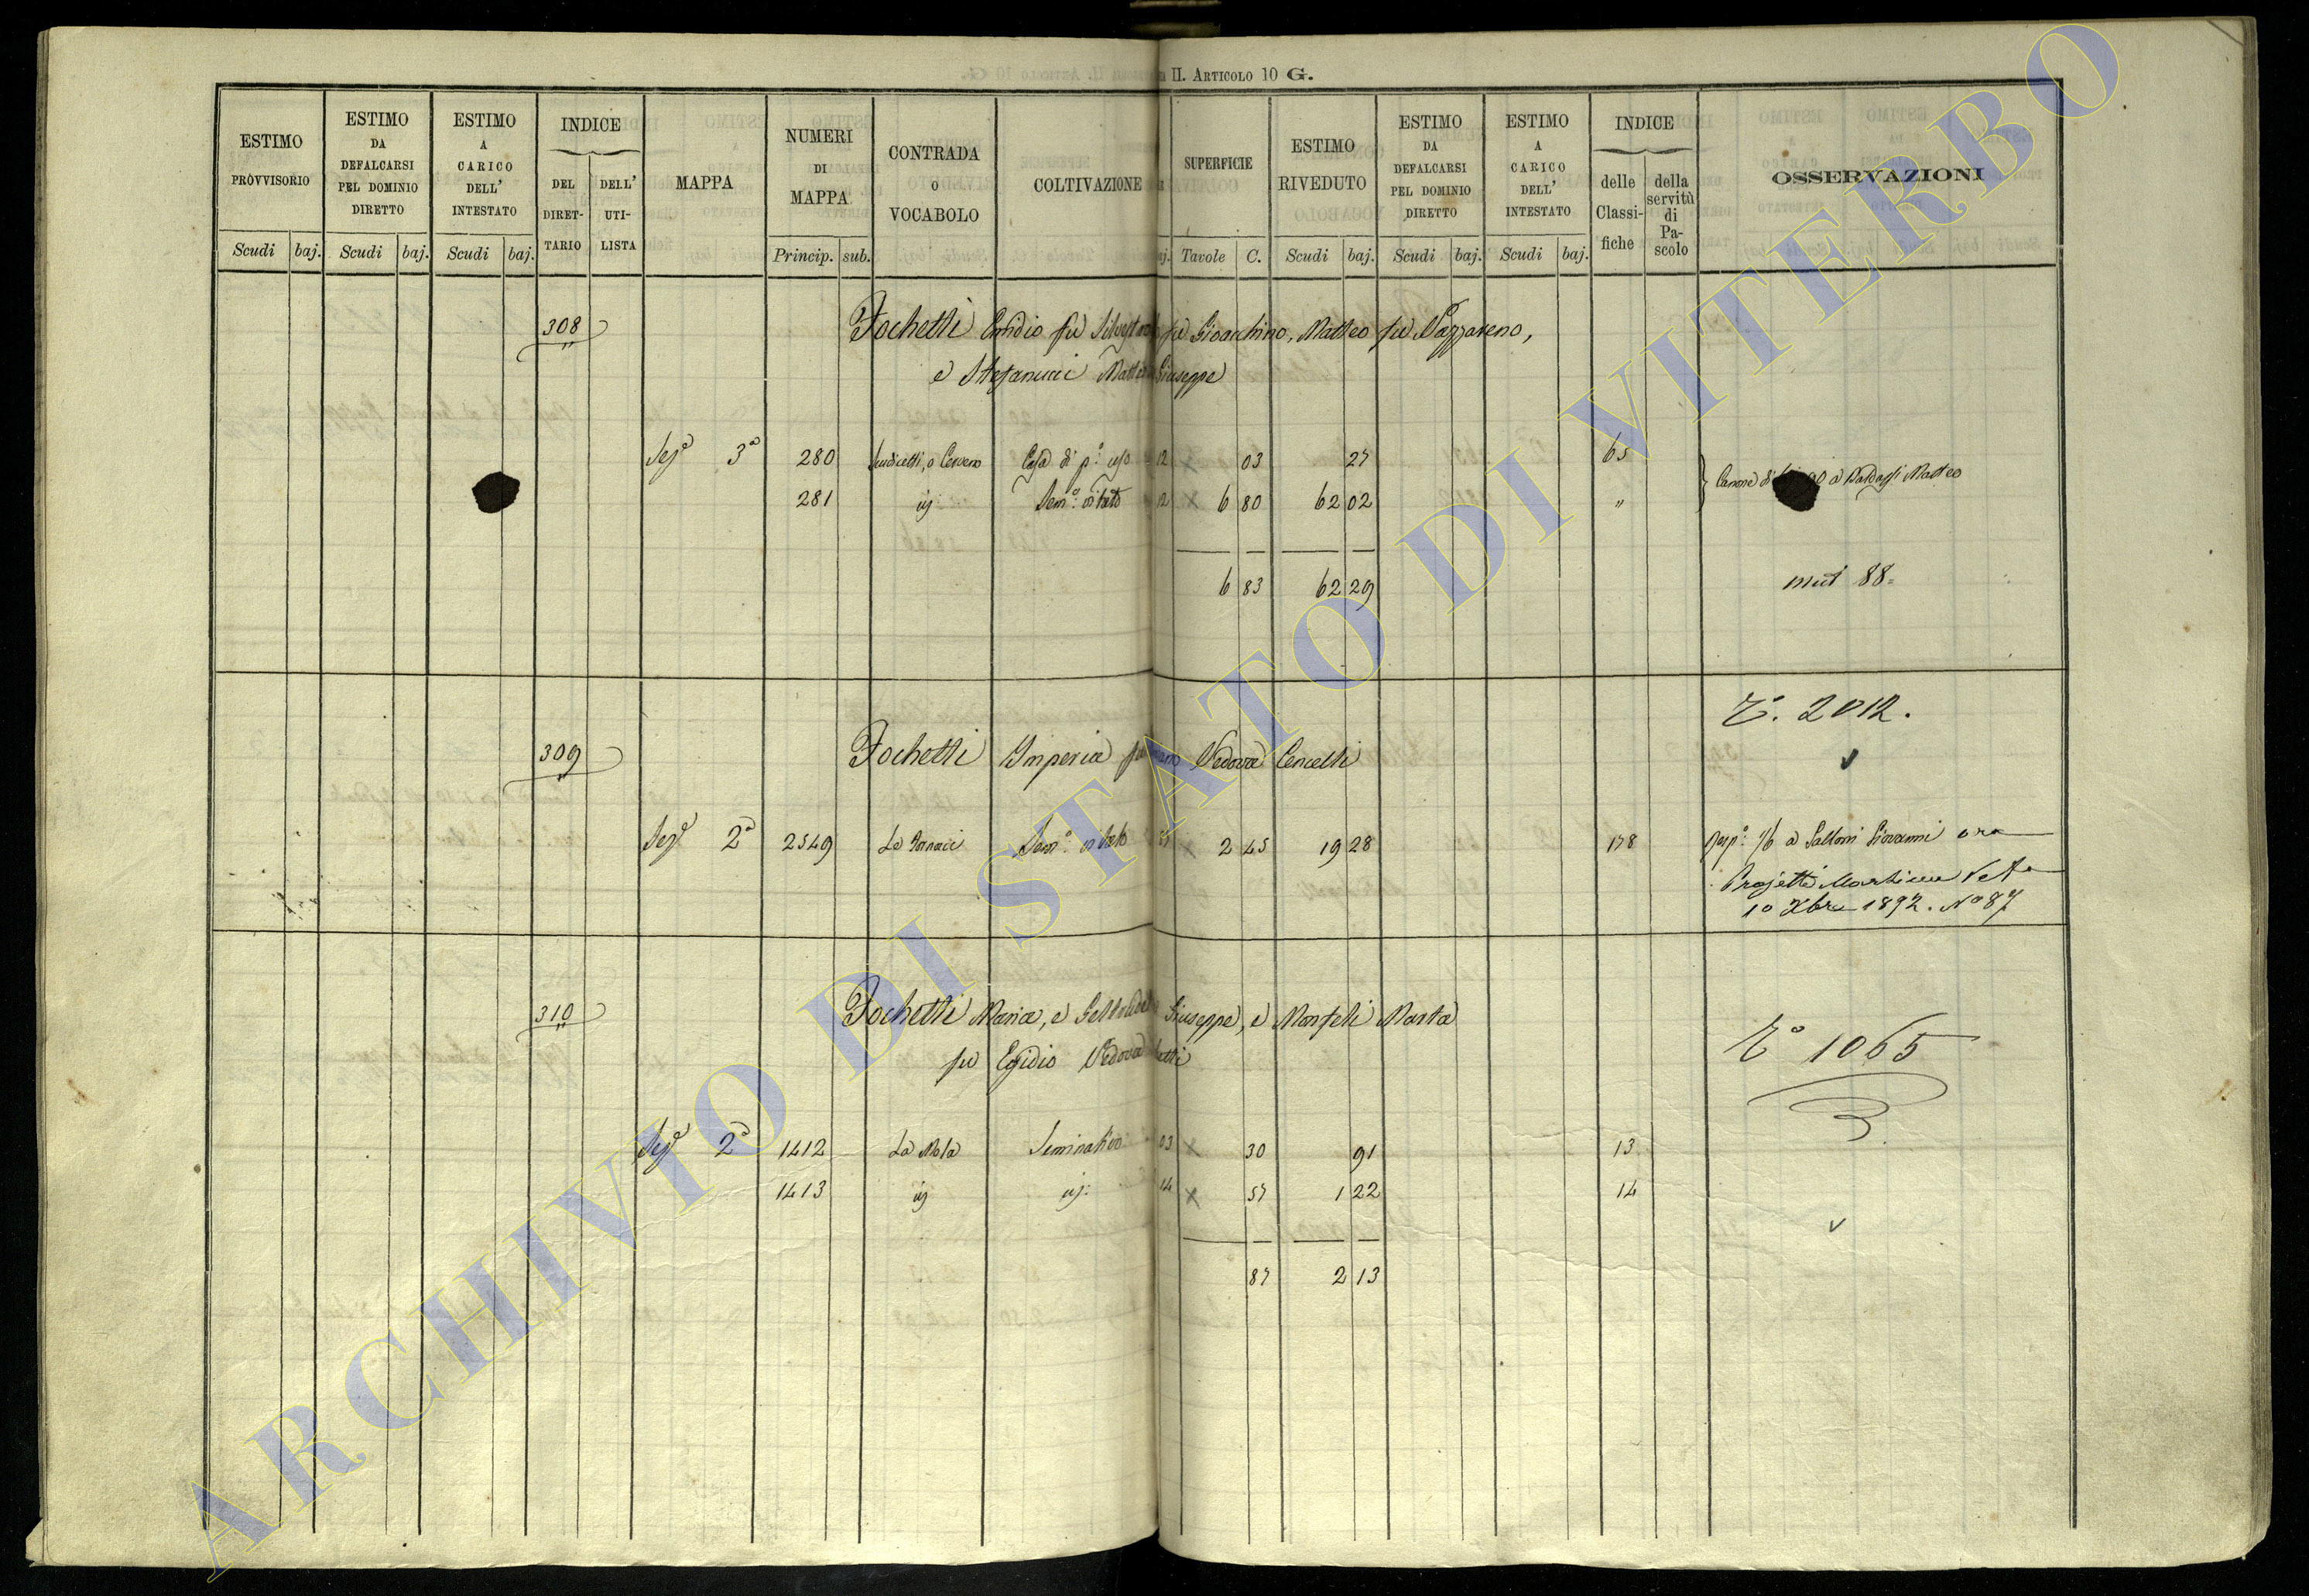 II. ARTICOLO 10 G.
ESTIMO PROVVISORIO
ESTIMO DA DEFALCARSI PEL DOMINIO DIRETTO
ESTIMO A CARICO DELL' INTESTATO
INDICE
DEL DIRETTARIO
DELL' UTILISTA
MAPPA
NUMERI DI MAPPA
CONTRADA O VOCABOLO
COLTIVAZIONE
SUPERFICIE
ESTIMO RIVEDUTO
ESTIMO DA DEFALCARSI PEL DOMINIO DIRETTO
ESTIMO A CARICO DELL' INTESTATO
INDICE
delle Classifiche
della servitù di Pascolo
OSSERVAZIONI
Scudi baj. Scudi baj. Scudi baj. Princip. sub. Tavole C. Scudi baj. Scudi baj. Scudi baj.
308 Fochetti Emidio fu Gioacchino, Matteo fu Nazzareno,
e Stefanucci Giuseppe
Sez.e 3a 280 Casa di p.o uso 12 03 27 65
Canone di a Matteo
281 Sem.o vitato 12 6 80 62 02 "
6 83 62 29
mut 88
To. 2012.
309 Fochetti Imperia Vedova Cencelli
Sez.e 2a 2549 Le Fornaci Sem.o vitato 2 45 19 28 178 a Salloni Giovanni ora
10 Xbre 1892. No 87
310 Fochetti Maria, e Giuseppe, e Marta
fu Egidio Vedova
To 1065
Sez.e 2a 1412 La Mola Seminativo 03 30 91 13
1413 14 57 1 22 14
87 2 13
ARCHIVIO DI STATO DI VITERBO